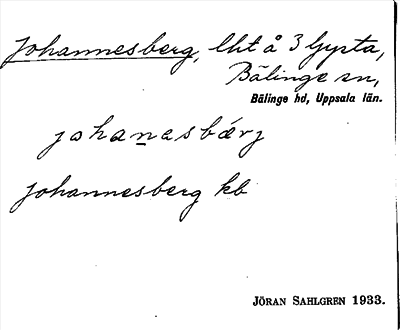 Johannesberg, lht å 3 Gysta,
Bälinge sn,
Bälinge hd, Uppsala län.
johanesbærj
Johannesberg kb
JÖRAN SAHLGREN 1933.